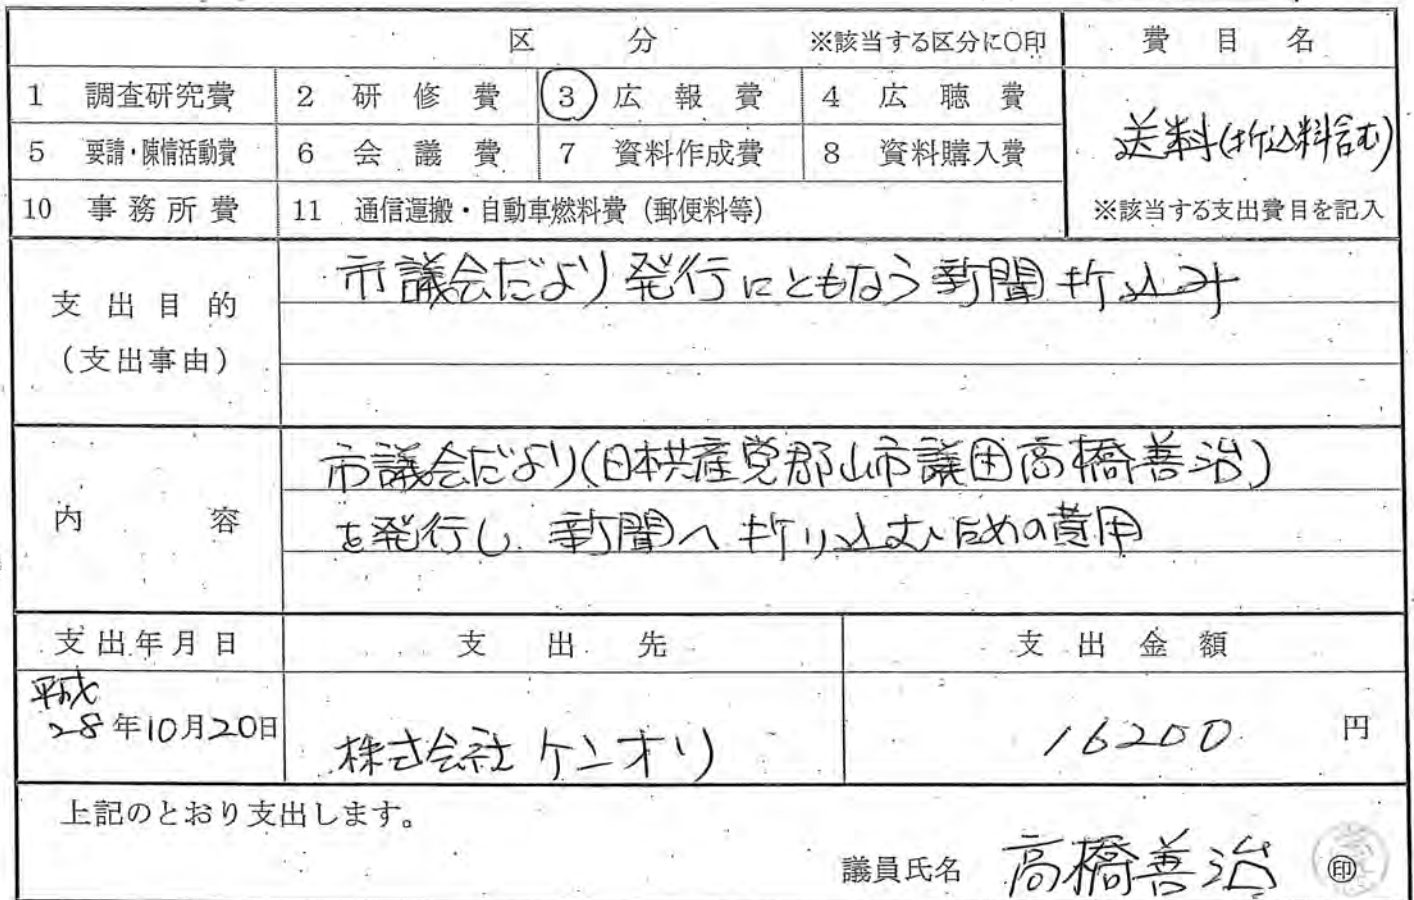 区 分 ※該当する区分に○印 費 目 名
1 調査研究費 2 研 修 費 3 広 報 費 4 広 聴 費
送料(折込料含む)
5 要請・陳情活動費 6 会 議 費 7 資料作成費 8 資料購入費
10 事務所費 11 通信運搬・自動車燃料費(郵便料等) ※該当する支出費目を記入
支出目的
(支出事由)
市議会だより発行にともなう新聞折込み
内 容
市議会だより(日本共産党郡山市議団高橋善治)
を発行し、新聞へ折り込むための費用
支出年月日 支 出 先 支 出 金 額
平成
28年10月20日 株式会社ケンオリ 16200 円
上記のとおり支出します。
議員氏名 高橋善治 ㊞